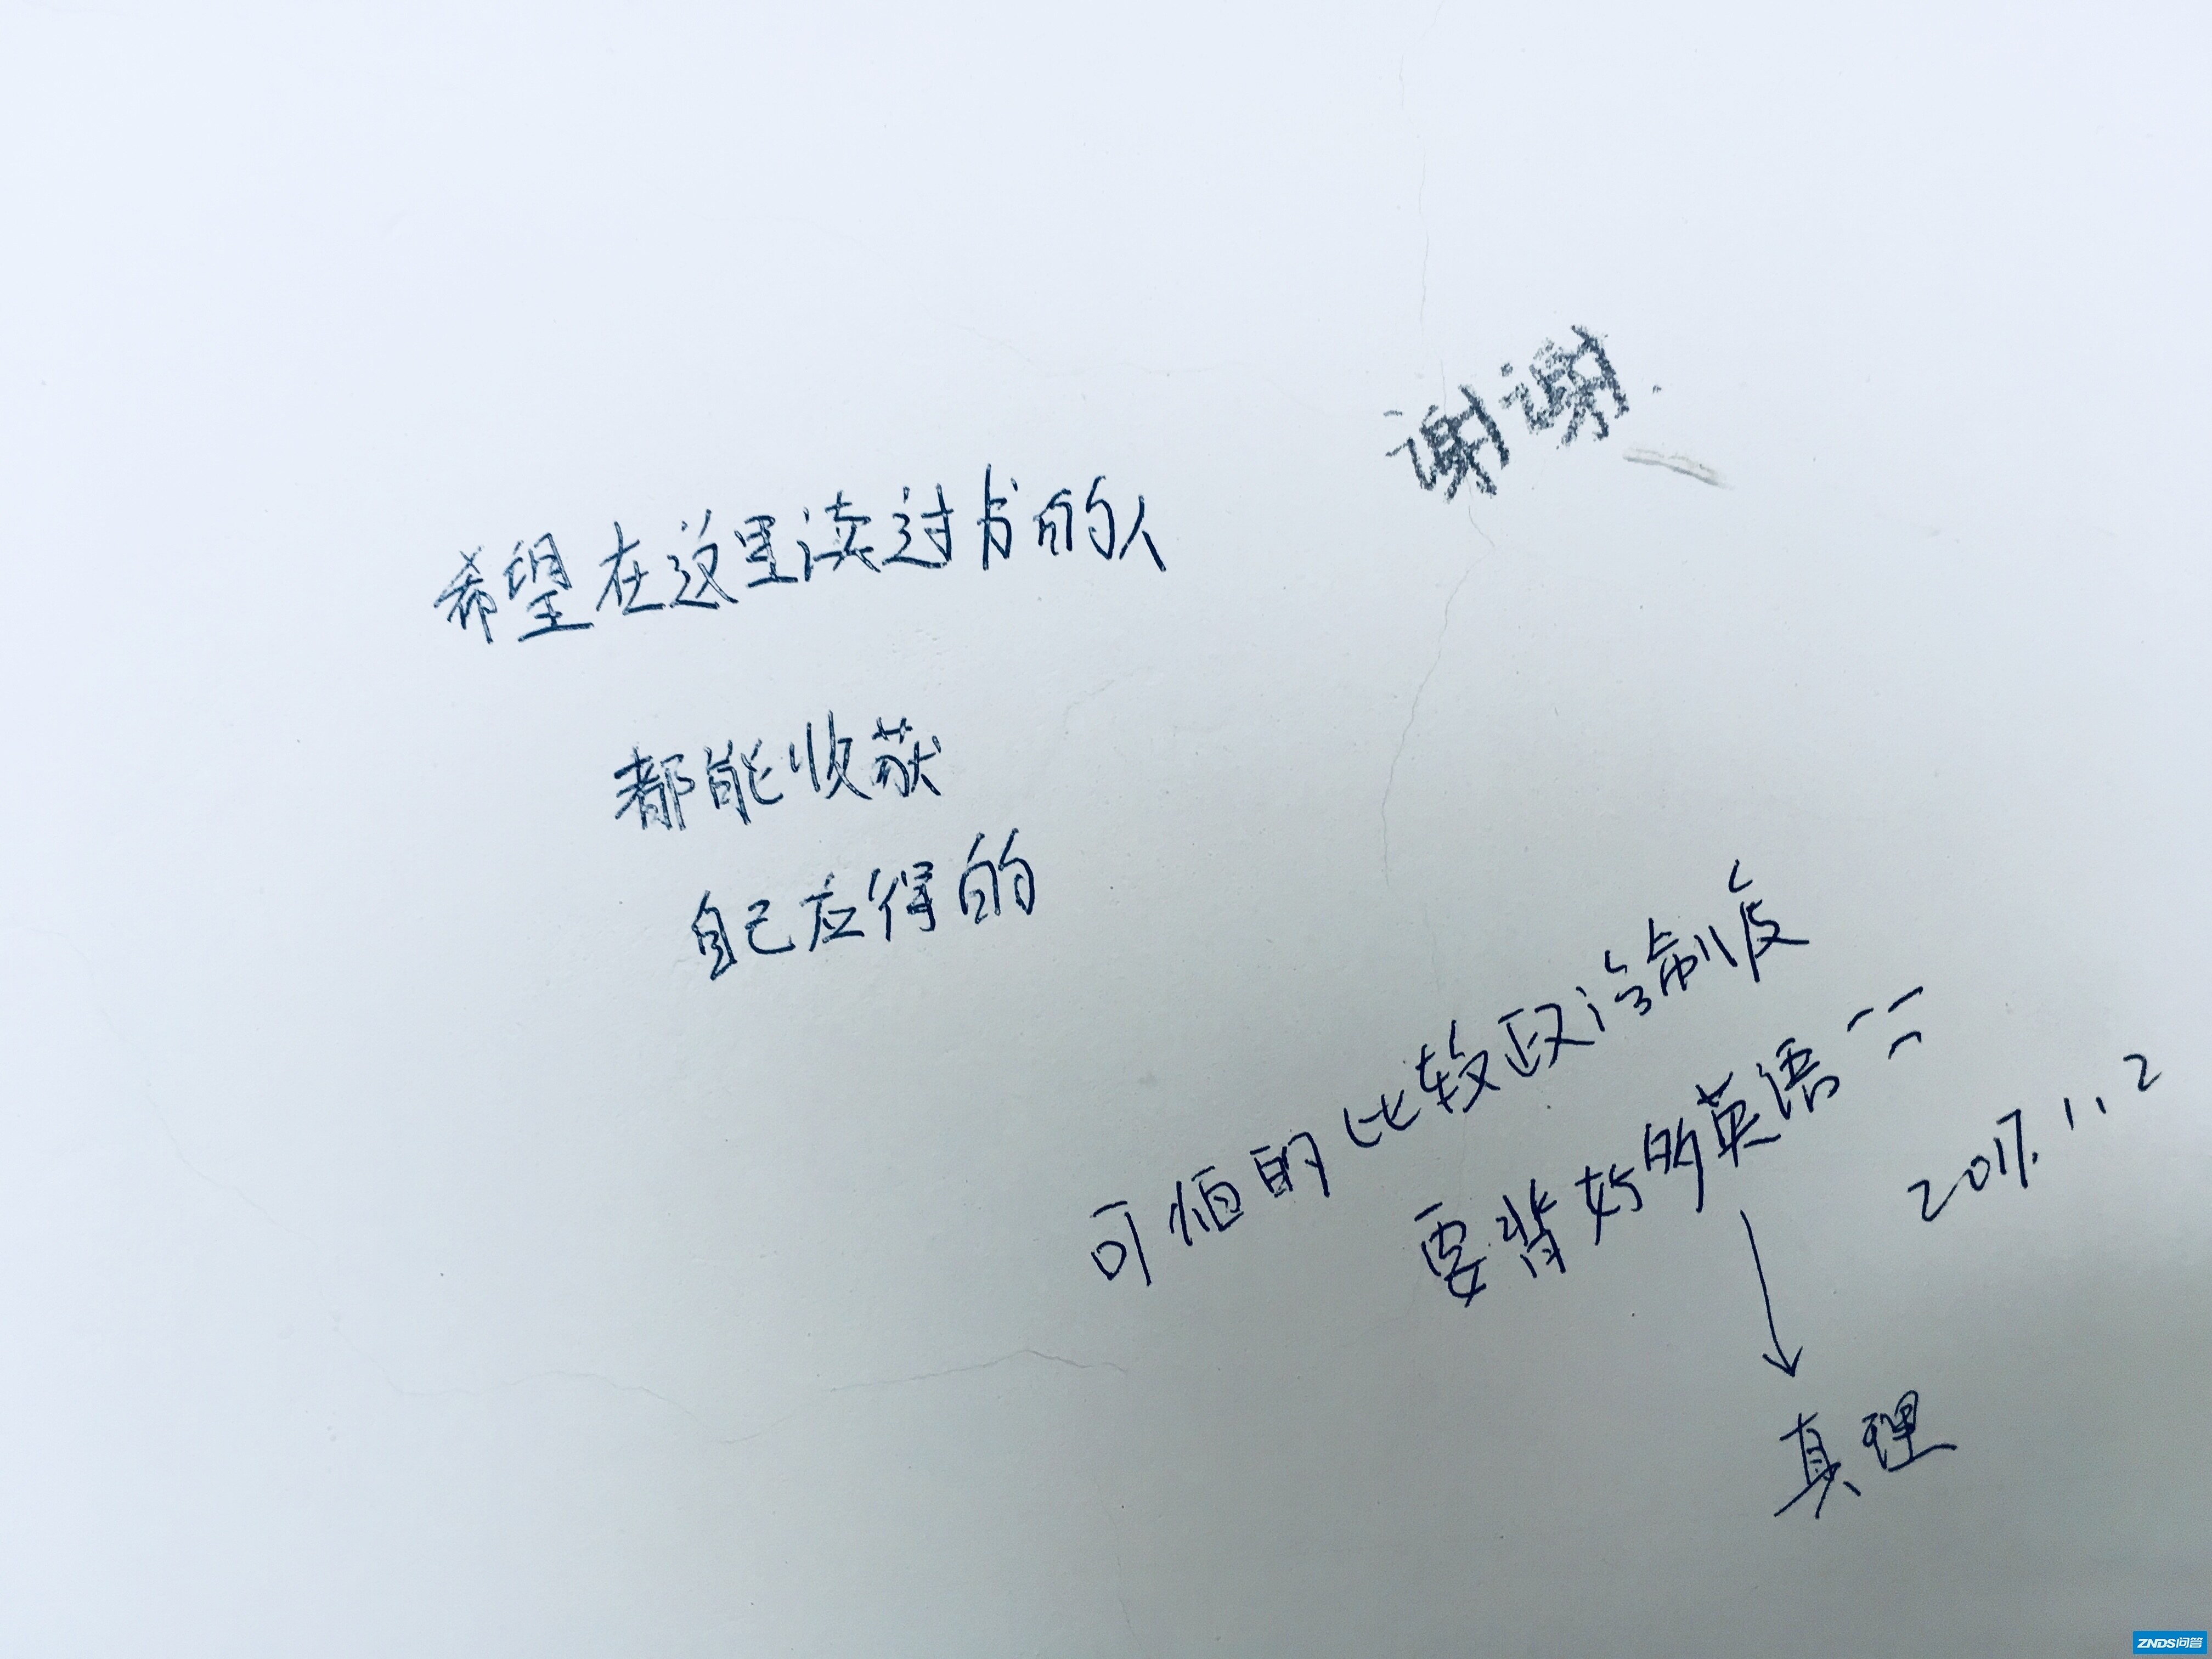 谢谢.
希望在这里读过书的人
都能收获
自己应得的
可怕的比较政治制度
要背好多英语
2017.11.2
真理
ZNDS问答